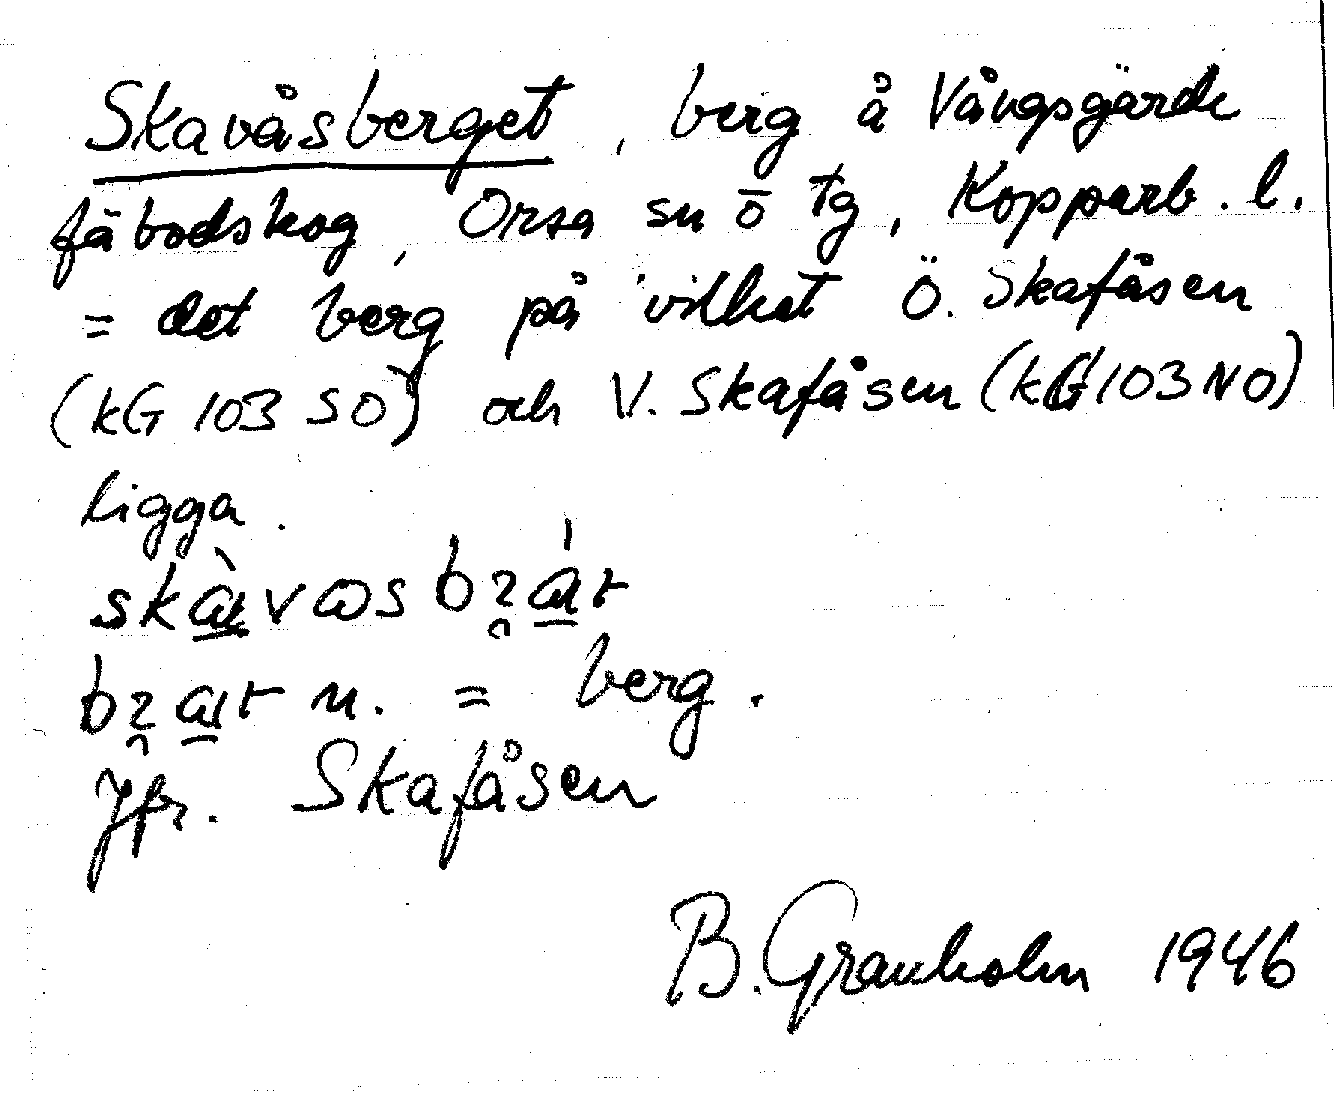 Skavåsberget, berg å Vångsgärde
fäbodskog, Orsa sn o tg, Kopparb. l.
= det berg på vilket Ö. Skafåsen
(kG 103 SO) och V. Skafåsen (kG 103 NO)
ligga.
n. = berg.
Jfr. Skafåsen
B. Granholm 1946